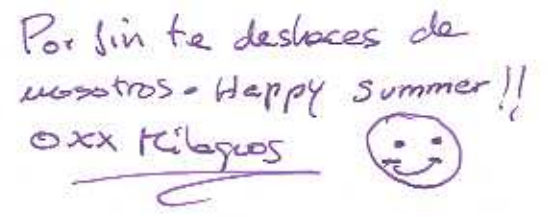 Por fin te deshaces de
nosotros. Happy Summer!!
OXX Milagros